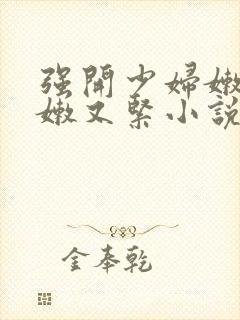 强開少婦嫩
嫩又緊小說
金奉乾